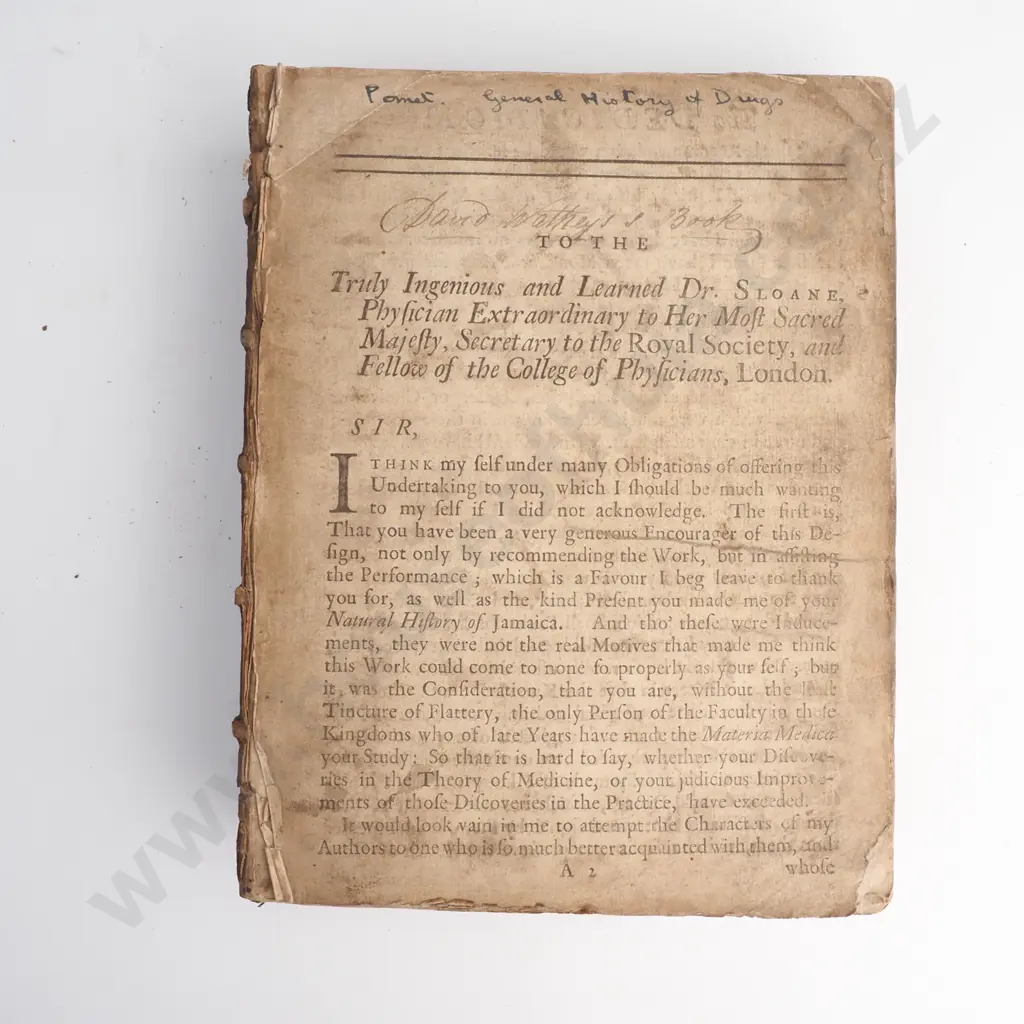 Pomet. General History of Drugs
David 's Book
TO THE
Truly Ingenious and Learned Dr. SLOANE,
Phyſician Extraordinary to Her Moſt Sacred
Majeſty, Secretary to the Royal Society, and
Fellow of the College of Phyſicians, London.
SIR,
I THINK my ſelf under many Obligations of offering this
Undertaking to you, which I ſhould be much wanting
to my ſelf if I did not acknowledge. The firſt is,
That you have been a very generous Encourager of this De-
ſign, not only by recommending the Work, but in aſſiſting
the Performance; which is a Favour I beg leave to thank
you for, as well as the kind Preſent you made me of your
Natural Hiſtory of Jamaica. And tho' theſe were Induce-
ments, they were not the real Motives that made me think
this Work could come to none ſo properly as your ſelf; but
it was the Conſideration, that you are, without the leaſt
Tincture of Flattery, the only Perſon of the Faculty in theſe
Kingdoms who of late Years have made the Materia Medica
your Study: So that it is hard to ſay, whether your Diſcove-
ries in the Theory of Medicine, or your judicious Improve-
ments of thoſe Diſcoveries in the Practice, have exceeded.
It would look vain in me to attempt the Characters of my
Authors to one who is ſo much better acquainted with them, and
A 2 whoſe